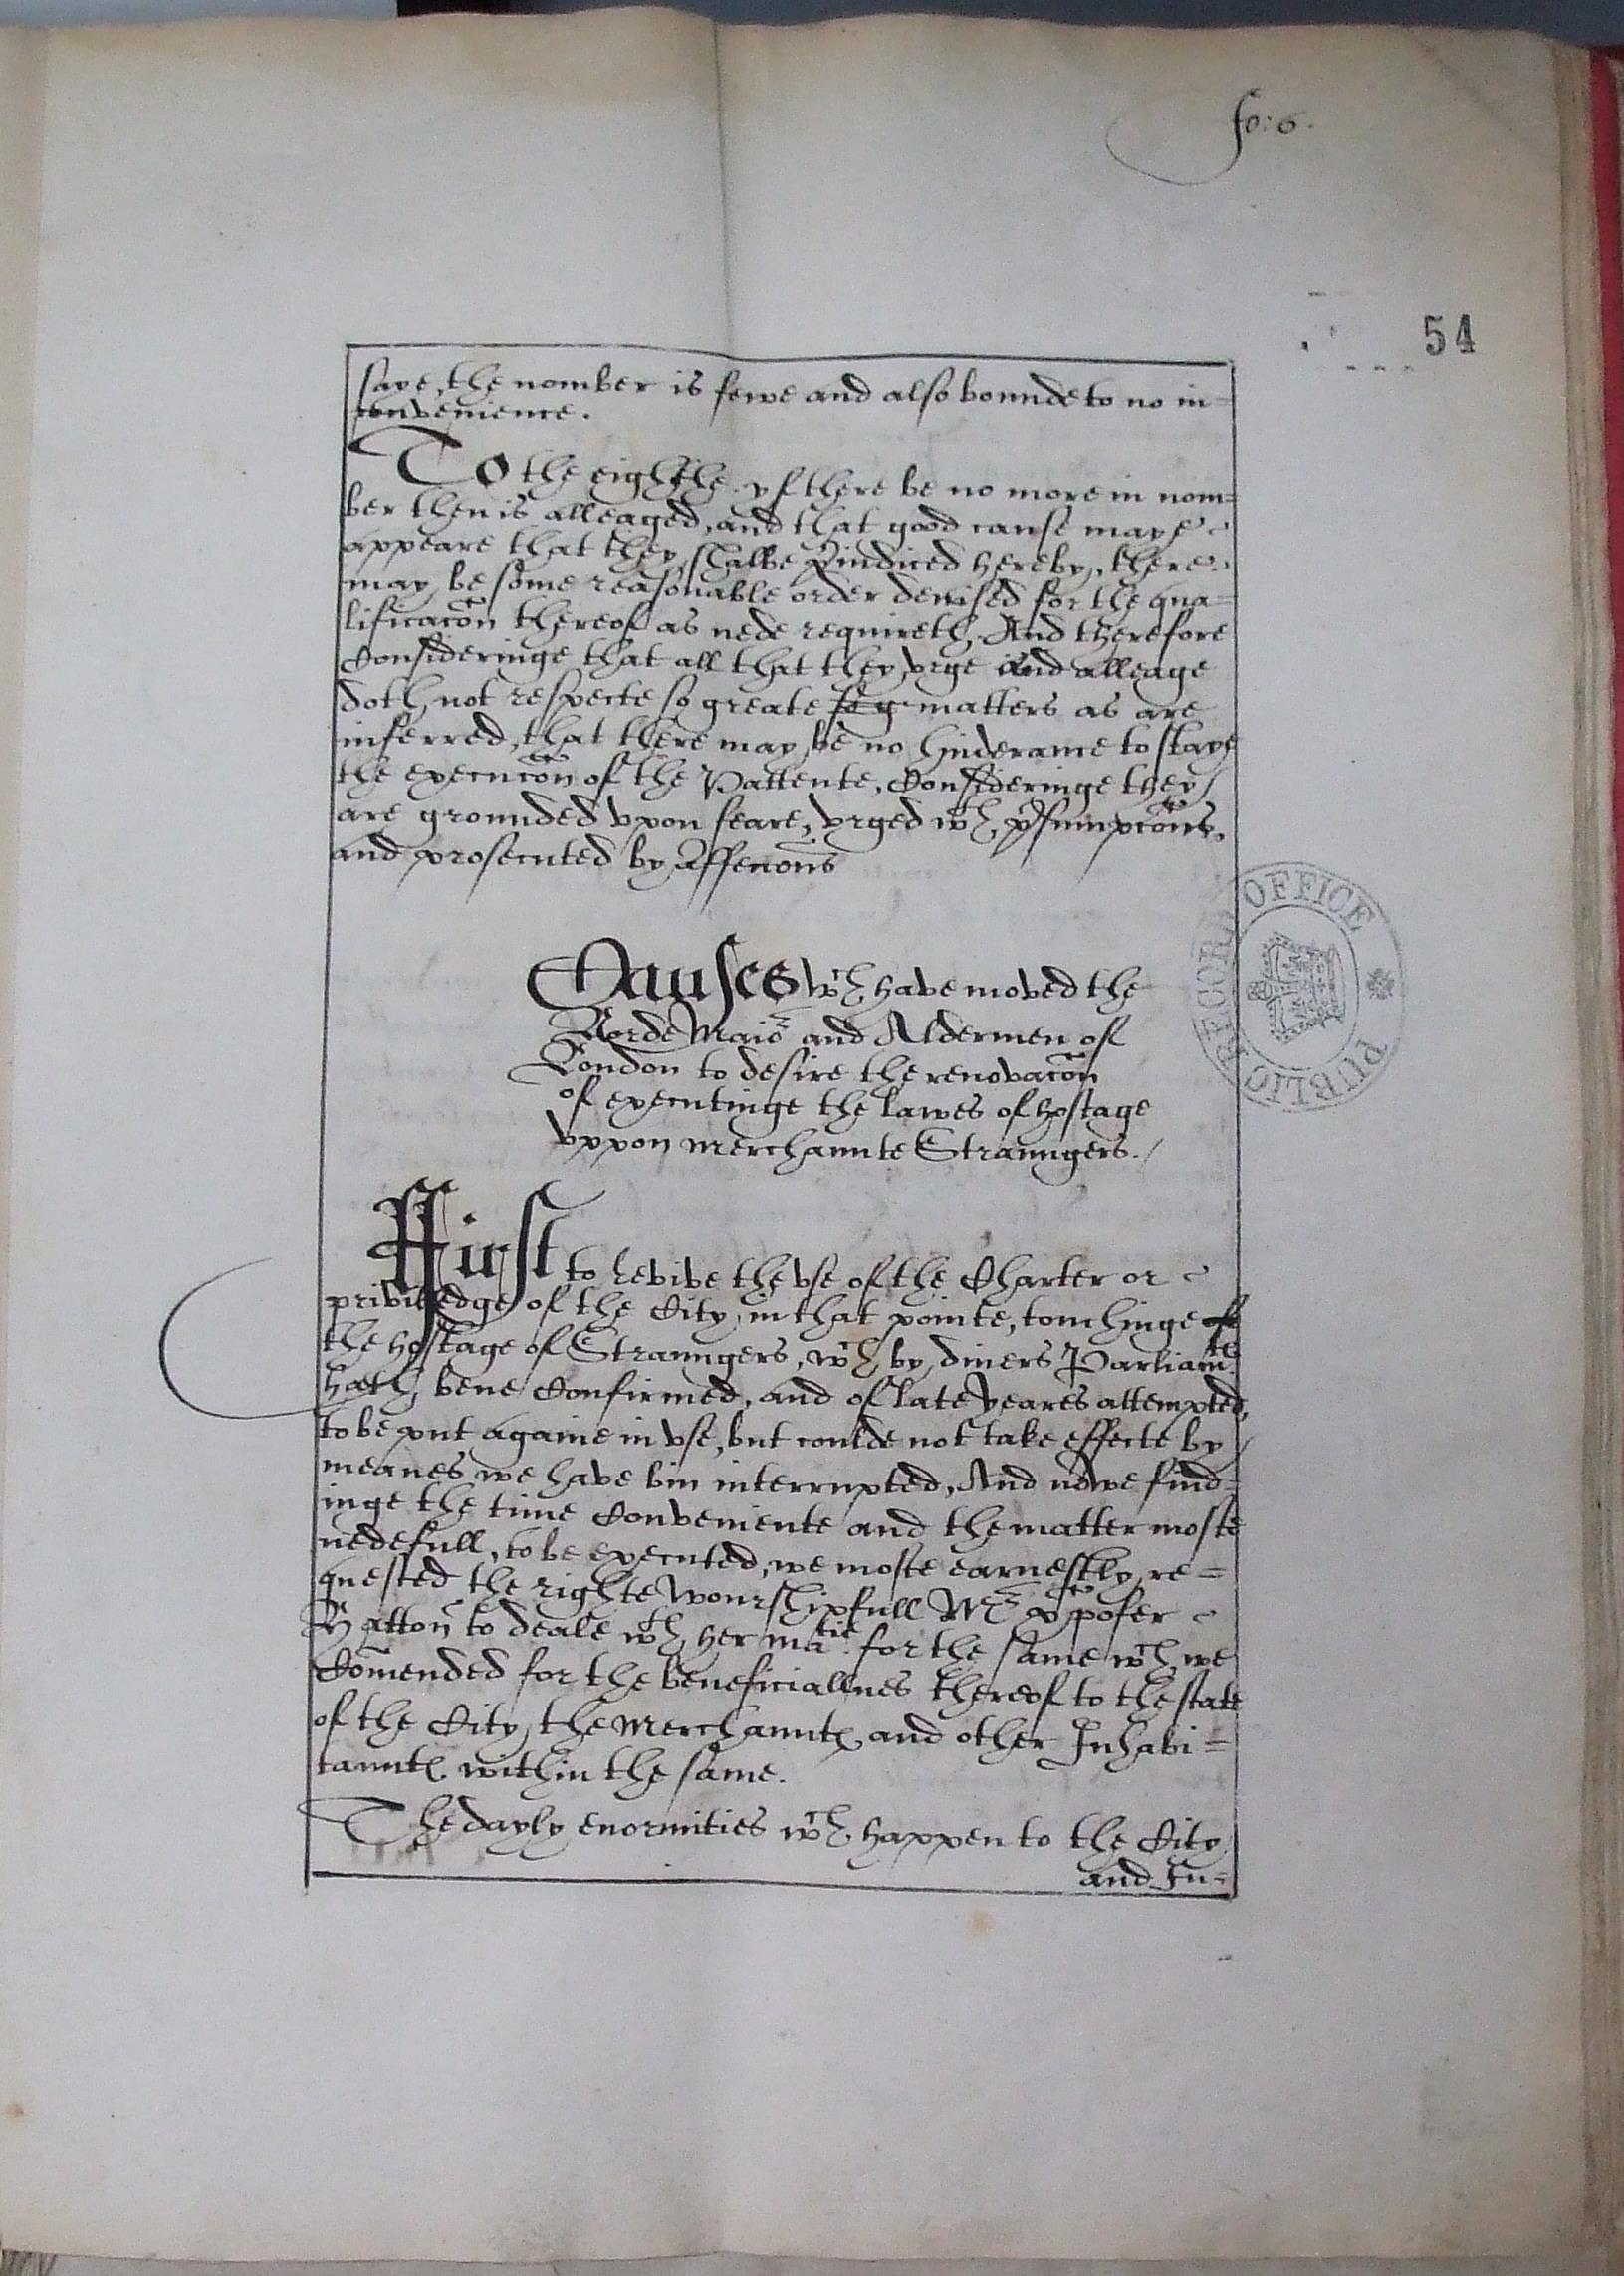 fo: 6.
54
saye, the nomber is fewe and also bounde to no in=
convenience.
To the eighthe. yf there be no more in nom=
ber then is alleaged, and that good cause maye
appeare that they shalbe p̱iudiced hereby, there
may be some reasonable order deuised for the qua=
lificac͠on thereof as nede requireth. And therefore
Consideringe that all that they vrge and alleage
doth not respecte so greate matters as are
inferred, that there may be no hinderance to staye
the execuc͠on of the Pattente, Consideringe they
are grounded vpon feare, vrged wth p̱sumpc͠ons,
and prosecuted by
Causes wch have moved the
Lorde Maior and Aldermen of
London to desire the renovac͠on
of executinge the lawes of hostage
vppon merchaunte Straungers./
First to revive the vse of the Charter or
priviledge of the City, in that pointe, touchinge of
the hostage of Straungers, wch by diuers Parliamts
hath bene Confirmed, and of late yeares attempted,
to be put againe in vse, but coulde not take effecte by
meanes we have bin interrupted, And nowe find=
inge the time Conveniente and the matter moste
nedefull, to be executed, we moste earnestly re=
quested the righte wourshipfull Mr
Hatton to deale wth her matie. for the same wch we
Com̃ended for the beneficiallnes thereof to the state
of the City, the Merchauntes and other Inhabi=
tauntes within the same.
The dayly enormities wch happen to the City
and In=
PUBLIC RECORD OFFICE